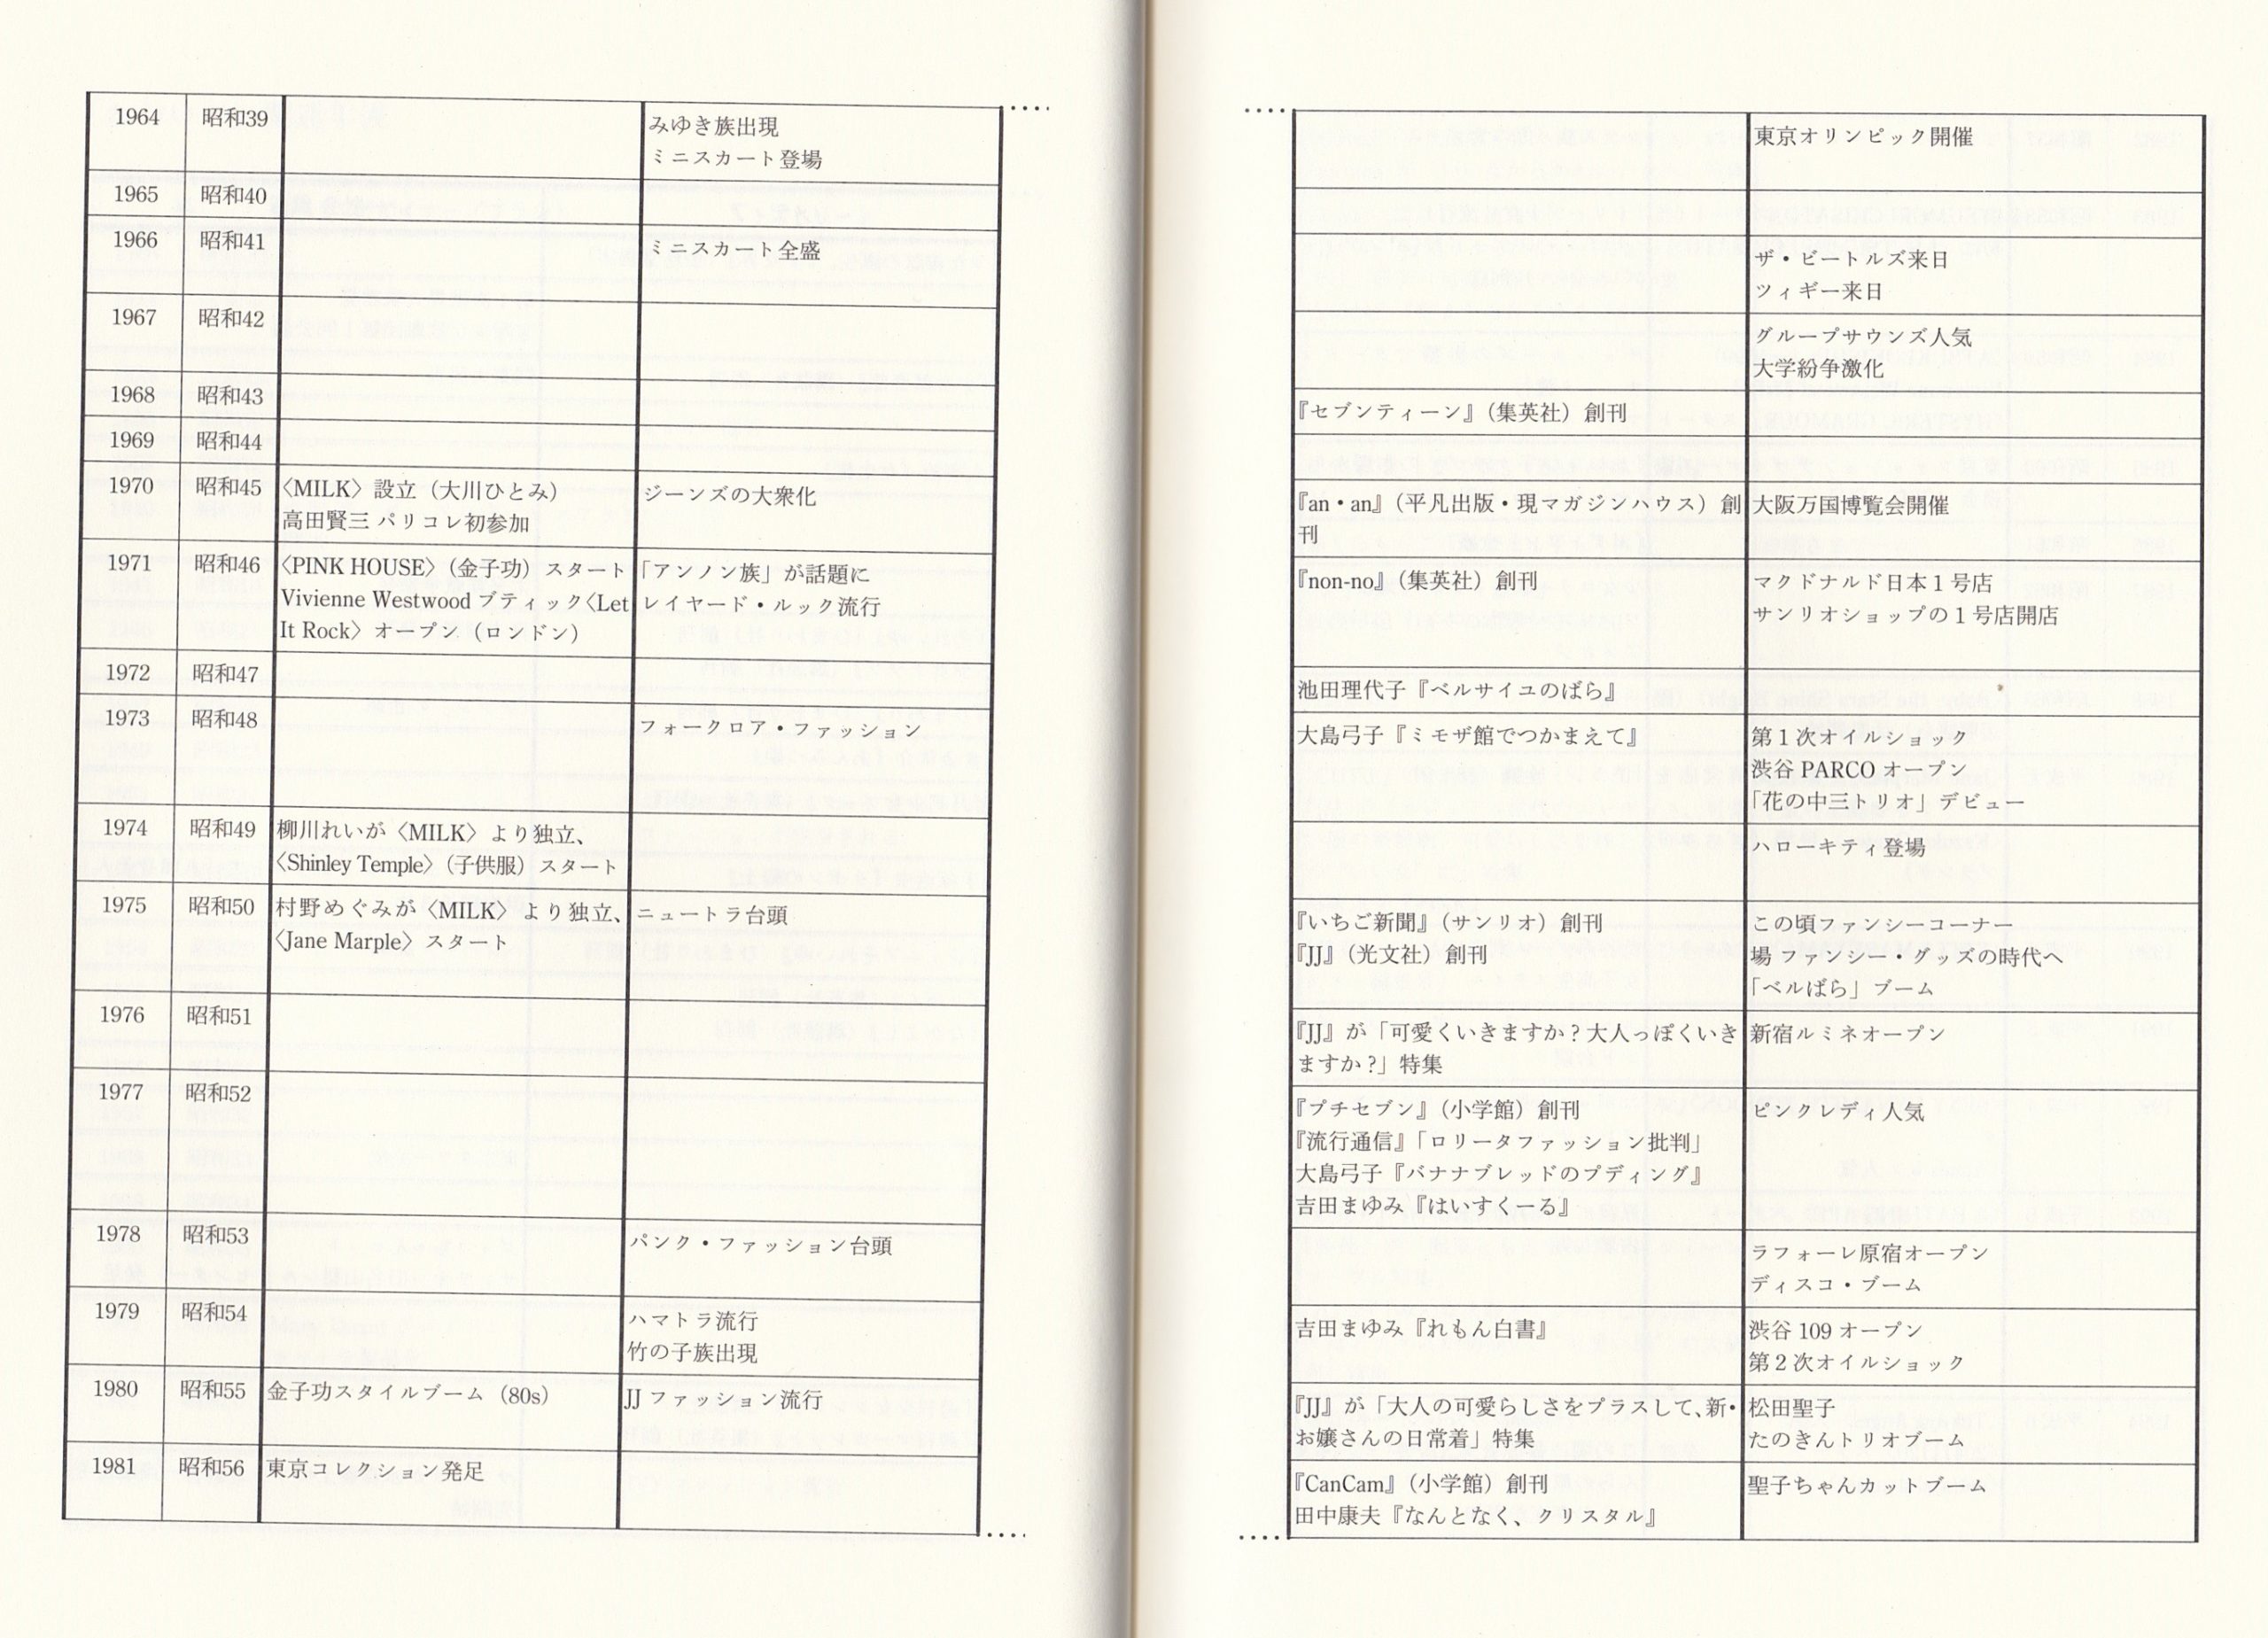 1964 昭和39
みゆき族出現
ミニスカート登場
1965 昭和40
1966 昭和41
ミニスカート全盛
1967 昭和42
1968 昭和43
1969 昭和44
1970 昭和45
〈MILK〉設立（大川ひとみ）
高田賢三 パリコレ初参加
ジーンズの大衆化
1971 昭和46
〈PINK HOUSE〉（金子功）スタート
Vivienne Westwood ブティック〈Let
It Rock〉オープン（ロンドン）
「アンノン族」が話題に
レイヤード・ルック流行
1972 昭和47
1973 昭和48
フォークロア・ファッション
1974 昭和49
柳川れいが〈MILK〉より独立、
〈Shinley Temple〉（子供服）スタート
1975 昭和50
村野めぐみが〈MILK〉より独立、
〈Jane Marple〉スタート
ニュートラ台頭
1976 昭和51
1977 昭和52
1978 昭和53
パンク・ファッション台頭
1979 昭和54
ハマトラ流行
竹の子族出現
1980 昭和55
金子功スタイルブーム（80s）
JJ ファッション流行
1981 昭和56
東京コレクション発足
東京オリンピック開催
ザ・ビートルズ来日
ツィギー来日
グループサウンズ人気
大学紛争激化
『セブンティーン』（集英社）創刊
『an・an』（平凡出版・現マガジンハウス）創
刊
大阪万国博覧会開催
『non-no』（集英社）創刊
マクドナルド日本１号店
サンリオショップの１号店開店
池田理代子『ベルサイユのばら』
大島弓子『ミモザ館でつかまえて』
第１次オイルショック
渋谷 PARCO オープン
「花の中三トリオ」デビュー
ハローキティ登場
『いちご新聞』（サンリオ）創刊
『JJ』（光文社）創刊
この頃ファンシーコーナー
場 ファンシー・グッズの時代へ
「ベルばら」ブーム
『JJ』が「可愛くいきますか？大人っぽくいき
ますか？」特集
新宿ルミネオープン
『プチセブン』（小学館）創刊
『流行通信』「ロリータファッション批判」
大島弓子『バナナブレッドのプディング』
吉田まゆみ『はいすくーる』
ピンクレディ人気
ラフォーレ原宿オープン
ディスコ・ブーム
吉田まゆみ『れもん白書』
渋谷 109 オープン
第２次オイルショック
『JJ』が「大人の可愛らしさをプラスして、新・
お嬢さんの日常着」特集
松田聖子
たのきんトリオブーム
『CanCam』（小学館）創刊
田中康夫『なんとなく、クリスタル』
聖子ちゃんカットブーム